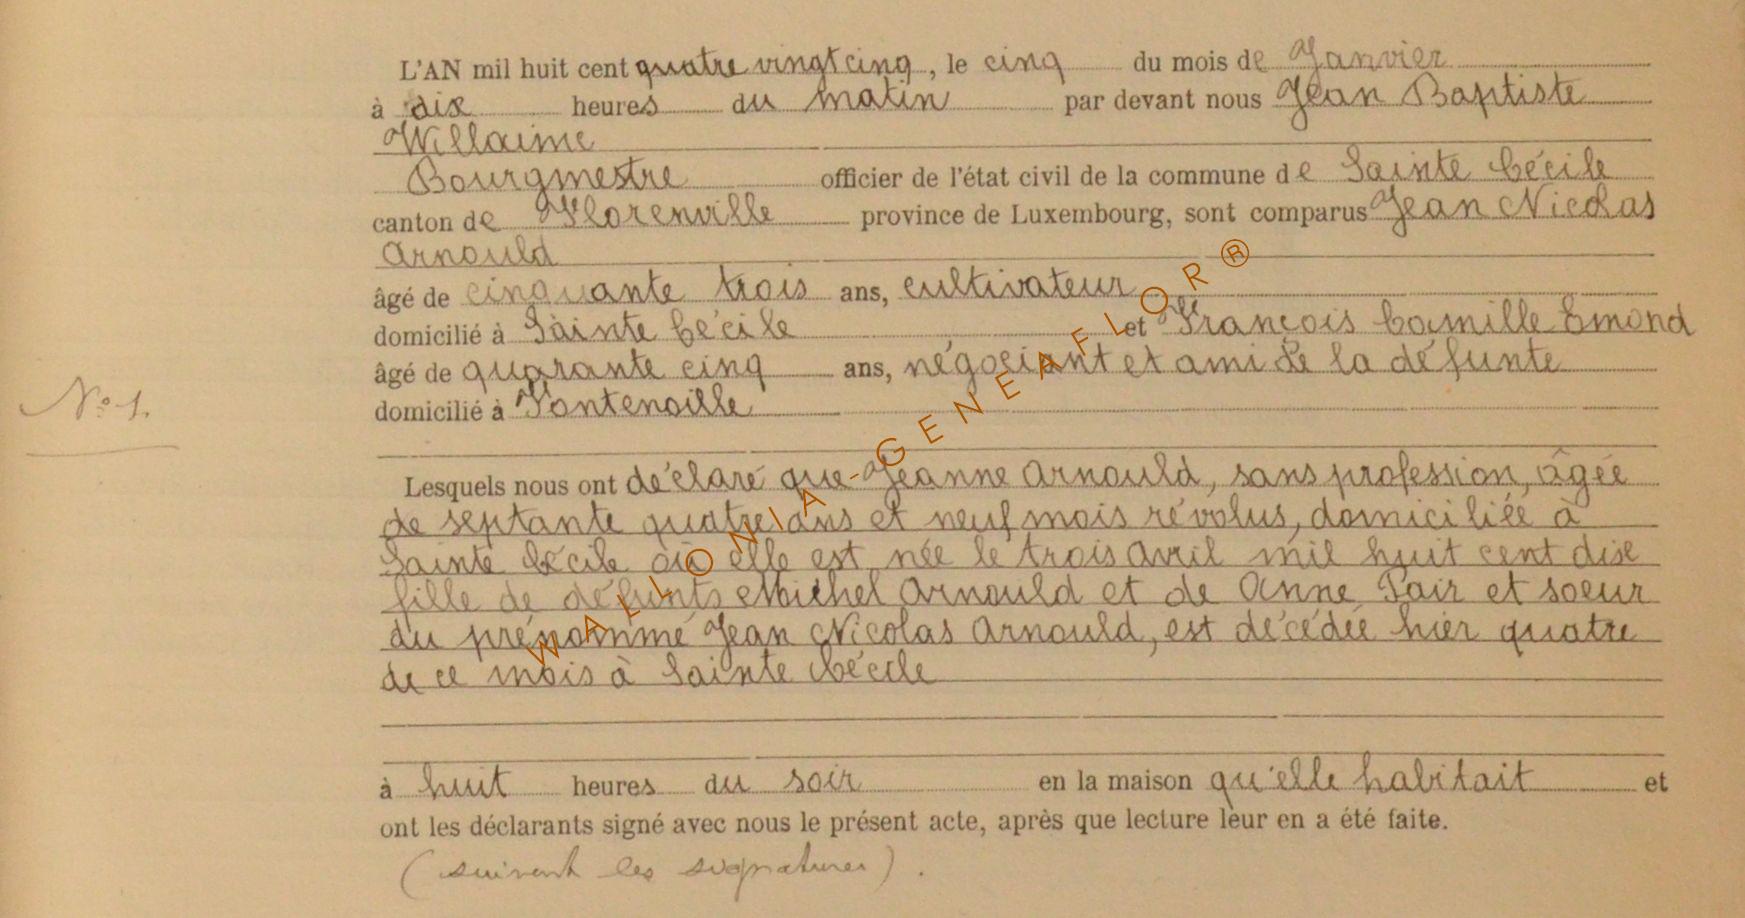 L'AN mil huit cent quatre vingt cinq, le cinq du mois de Janvier
à dix heures du matin par devant nous Jean Baptiste
Willaime
Bourgmestre officier de l'état civil de la commune de Sainte Cécile
canton de Florenville province de Luxembourg, sont comparus Jean Nicolas
Arnould
âgé de cinquante trois ans, cultivateur
domicilié à Sainte Cécile et François Camille Emond
âgé de quarante cinq ans, négociant et ami de la défunte
N° 1.
domicilié à Fontenoille
Lesquels nous ont déclaré que Jeanne Arnould, sans profession, âgée
de septante quatre ans et neuf mois révolus, domiciliée à
Sainte Cécile où elle est née le trois Avril mil huit cent dix
fille de défunts Michel Arnould et de Anne Pair et soeur
du prénommé Jean Nicolas Arnould, est décédée hier quatre
de ce mois à Sainte Cécile
à huit heures du soir en la maison qu'elle habitait et
ont les déclarants signé avec nous le présent acte, après que lecture leur en a été faite.
(suivent les signatures).
WALLONIA-GENEAFLOR®